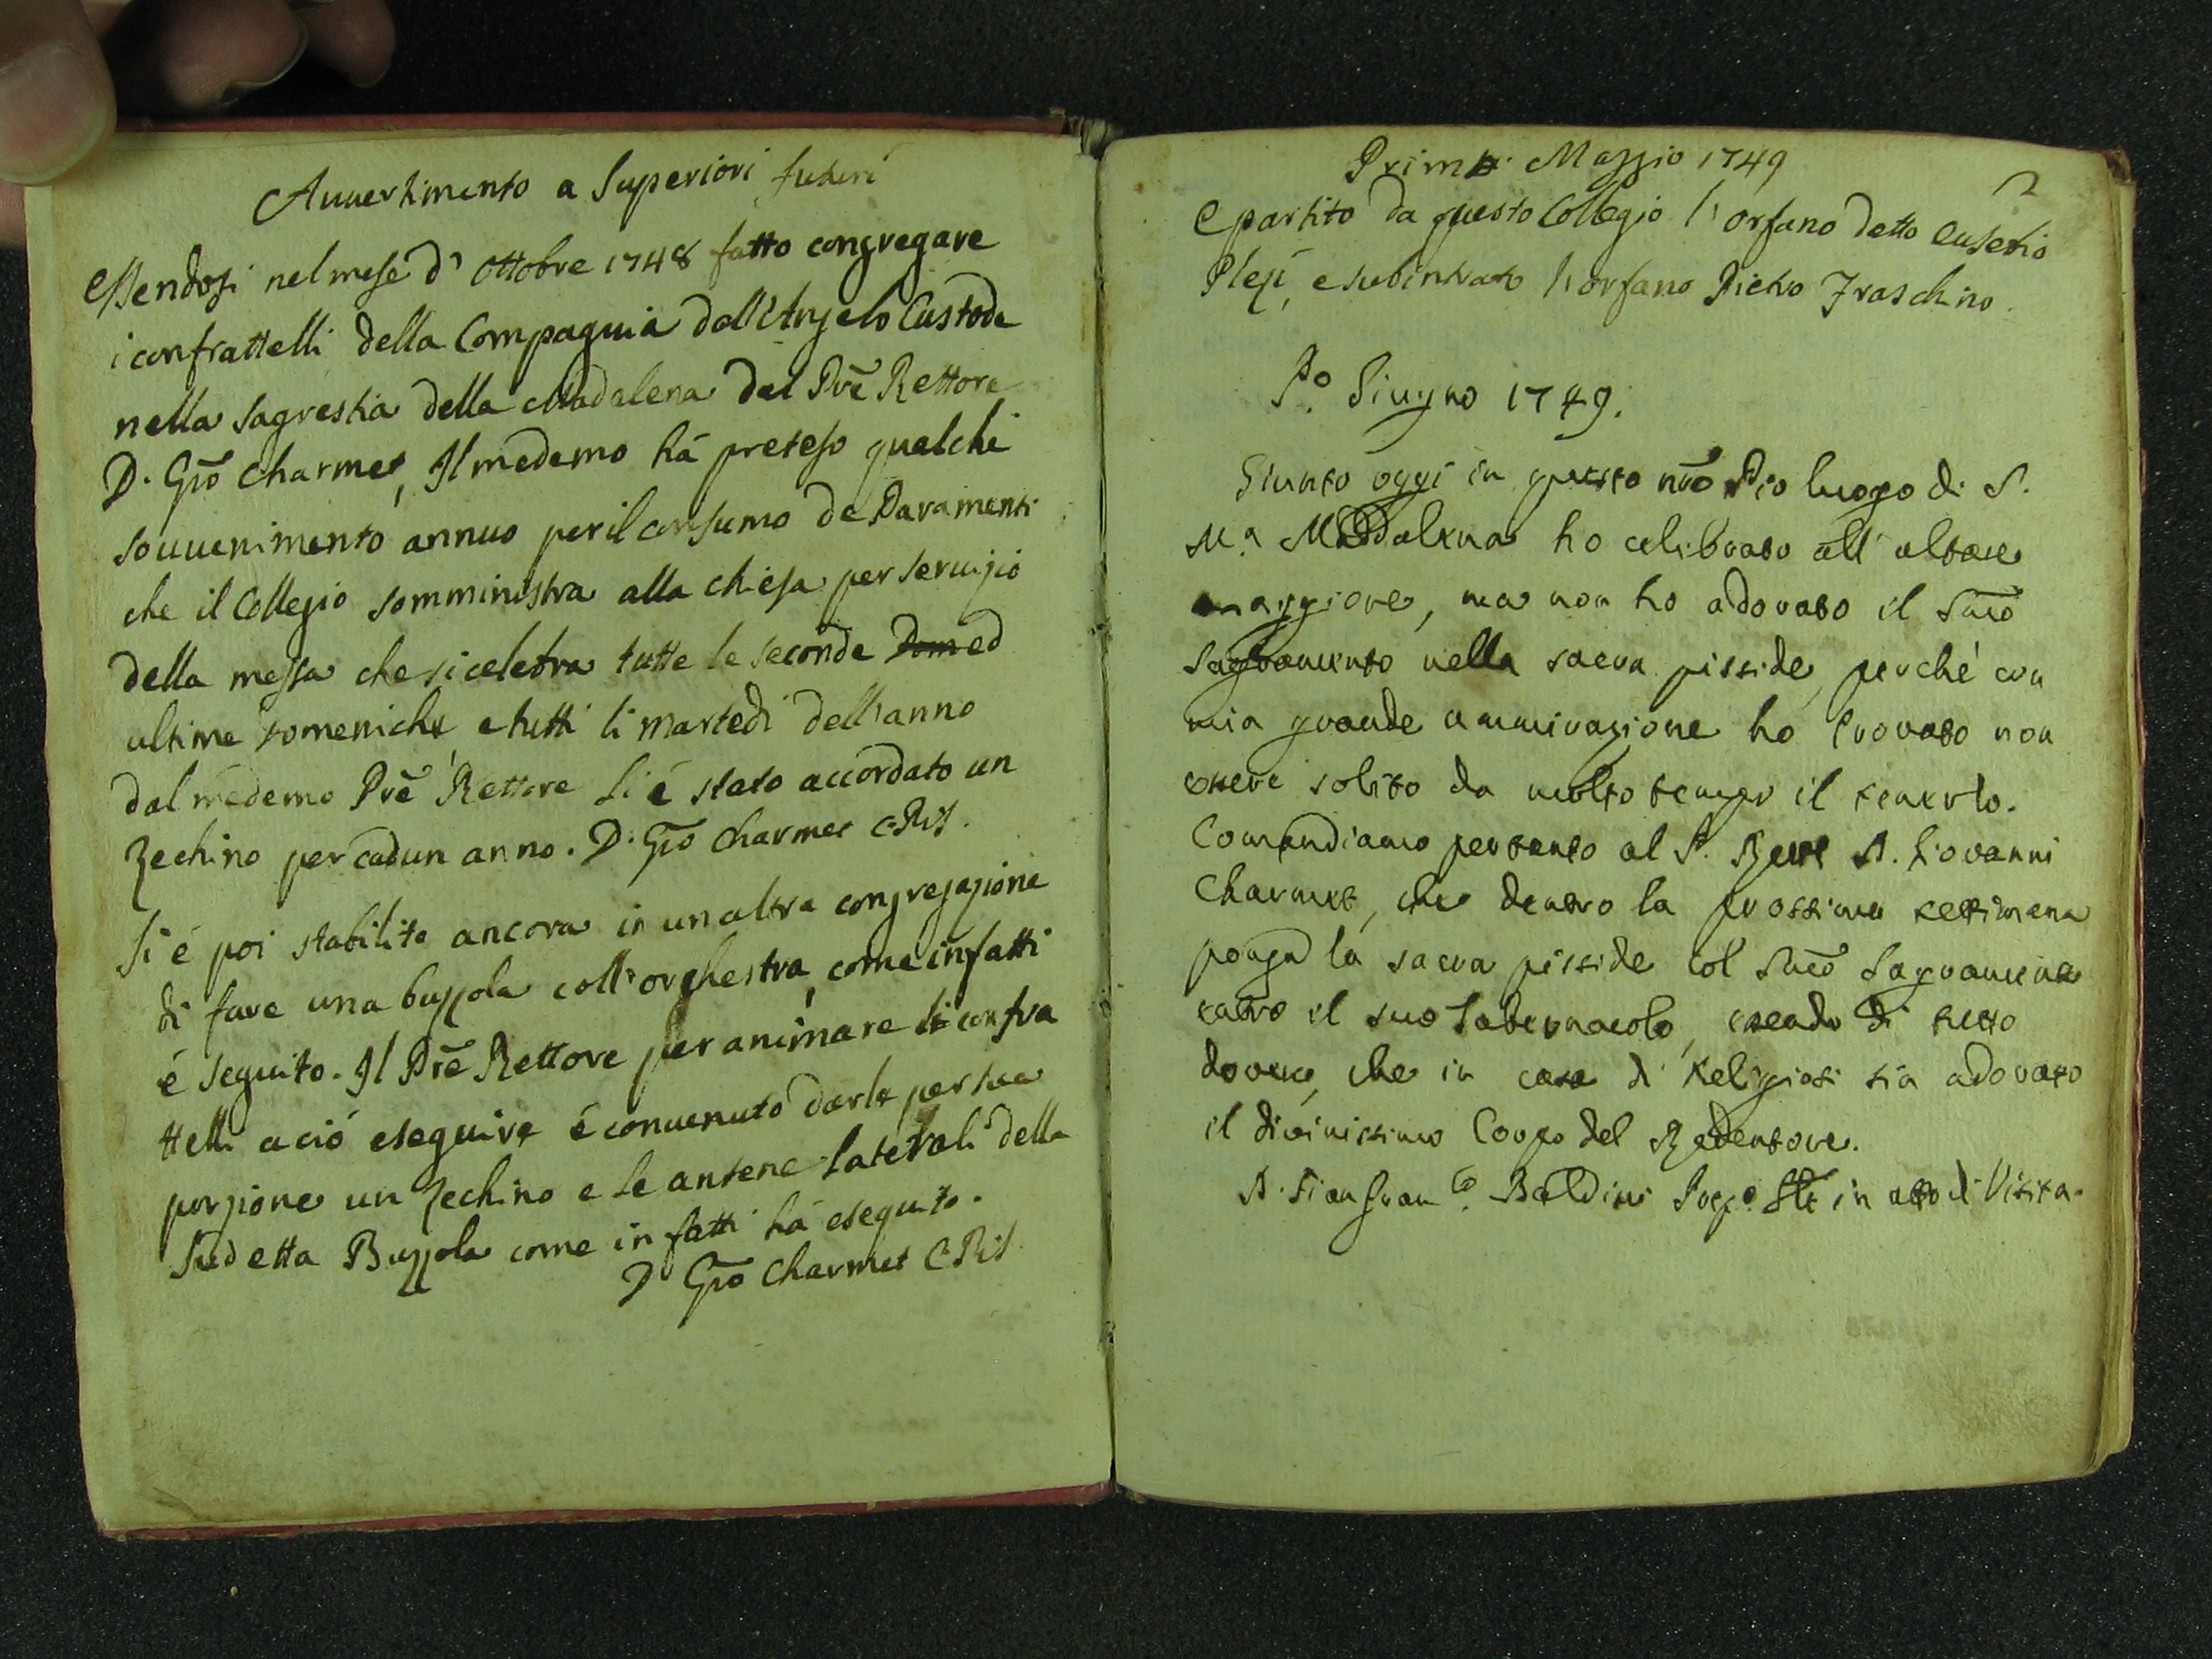 Auuertimento a Superiori futuri
Essendosi nel mese d' ottobre 1748 fatto congregare
i confrattelli della Compagnia dell'Angelo Custode
nella sagrestia della Madalena dal Prē Rettore
D. Giō Charmet, Il medemo há preteso qualche
souuenimento annuo per il consumo de Paramenti
che il Collegio somministra alla chiesa per seruigio
della messa che si celebra tutte le seconde Dom ed
ultime Domeniche e tutti li martedi dell'anno
dal medemo Prē Rettore li é stato accordato un
Zechino per cadun anno. D. Giō Charmet C.R.S.
Si é poi stabilito ancora in un altra congregazione
di fare una bussola coll'orchestra, come infatti
é seguito. Il Prē Rettore per animare li confra
ttelli a ció eseguire é conuenuto darle per sua
porzione un Zechino e le antene laterali della
sudetta Bussola come in fatti há eseguito.
D. Giō Charmet C.R.S.
2
Primo Maggio 1749
E partito da questo Collegio l'orfano detto Eusebio
e subintrato l'orfano Pietro Fraschino.
P.o Giugno 1749.
Giunto oggi in questo nrō Pio luogo di S.
M.a Maddalena ho celebrato all'altare
maggiore, ma non ho adorato il Smō
Sagramento nella sacra pisside, perché con
mia grande ammirazione ho trovato non
essere solito da molto tempo il tenerlo.
Comandiamo pertanto al P. D. Giovanni
Charmet, che dentro la prossima settimana
ponga la sacra pisside col Smō Sagramento
entro il suo Tabernacolo, essendo di tutto
dovere, che in casa di Religiosi sia adorato
il divinissimo Corpo del Redentore.
D. Gianfran.co Baldini Prep.o Gle in atto di Visita.